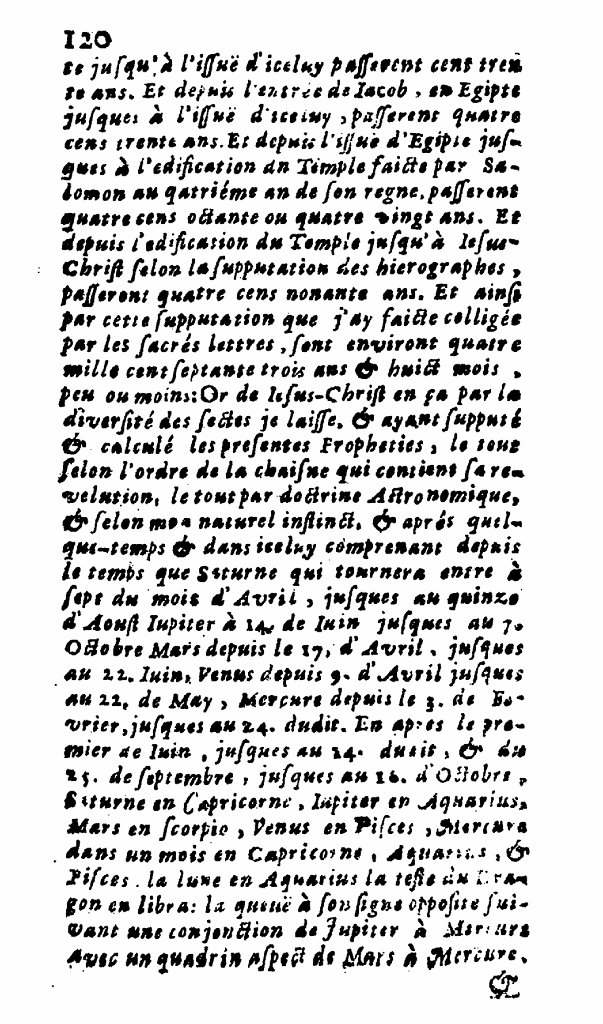 120
te juſqu'à l'iſſuë d'iceluy paſſerent cent tren
te ans. Et depuis l'entrée de Iacob, en Egipte
juſques à l'iſſuë d'iceluy, paſſerent quatre
cens trente ans. Et depuis l'iſſuë d'Egipte juſ-
ques à l'edification dn Temple faicte par Sa-
lomon au qatriéme an de ſon regne, paſſerent
quatre cens octante ou quatre vingt ans. Et
depuis l'edification du Temple juſqu'à Ieſus-
Chriſt ſelon la ſupputation des hierographes,
paſſerent quatre cens nonante ans. Et ainſi
par cette ſupputation que j'ay faicte colligée
par les ſacrés lettres, ſont environt quatre
mille cent ſeptante trois ans & huict mois,
peu ou moins: Or de Ieſus-Chriſt en ça par la
diverſité des ſectes je laiſſe, & ayant ſupputé
& calculé les preſentes Propheties, le tout
ſelon l'ordre de la chaiſne qui contient ſa re-
velution, le tout par doctrine Aſtronomique,
& ſelon mon naturel inſtinct, & aprés quel-
que-temps & dans iceluy comprenant depuis
le temps que Saturne qui tournera entre à
ſept du mois d'Avril, juſques au quinze
d'Aouſt Iupiter à 14. de Iuin juſques au 7.
Octobre Mars depuis le 17. d'Avril, juſques
au 22. Iuin, Venus depuis 9. d'Avril juſques
au 22. de May, Mercure depuis le 3. de Fe-
vrier, juſques au 24. dudit. En apres le pre-
mier de Iuin, juſques au 24. dudit, & du
25. de ſeptembre, juſques au 16. d'Octobre,
Saturne en Capricorne, Iupiter en Aquarius,
Mars en ſcorpio, Venus en Piſces, Mercure
dans un mois en Capricorne, Aquarius, &
Piſces, la lune en Aquarius la teſte du Dra-
gon en libra: la queuë à ſon ſigne oppoſite ſui-
vant une conjonction de Jupiter à Mercure
avec un quadrin aſpect de Mars à Mercure,
&